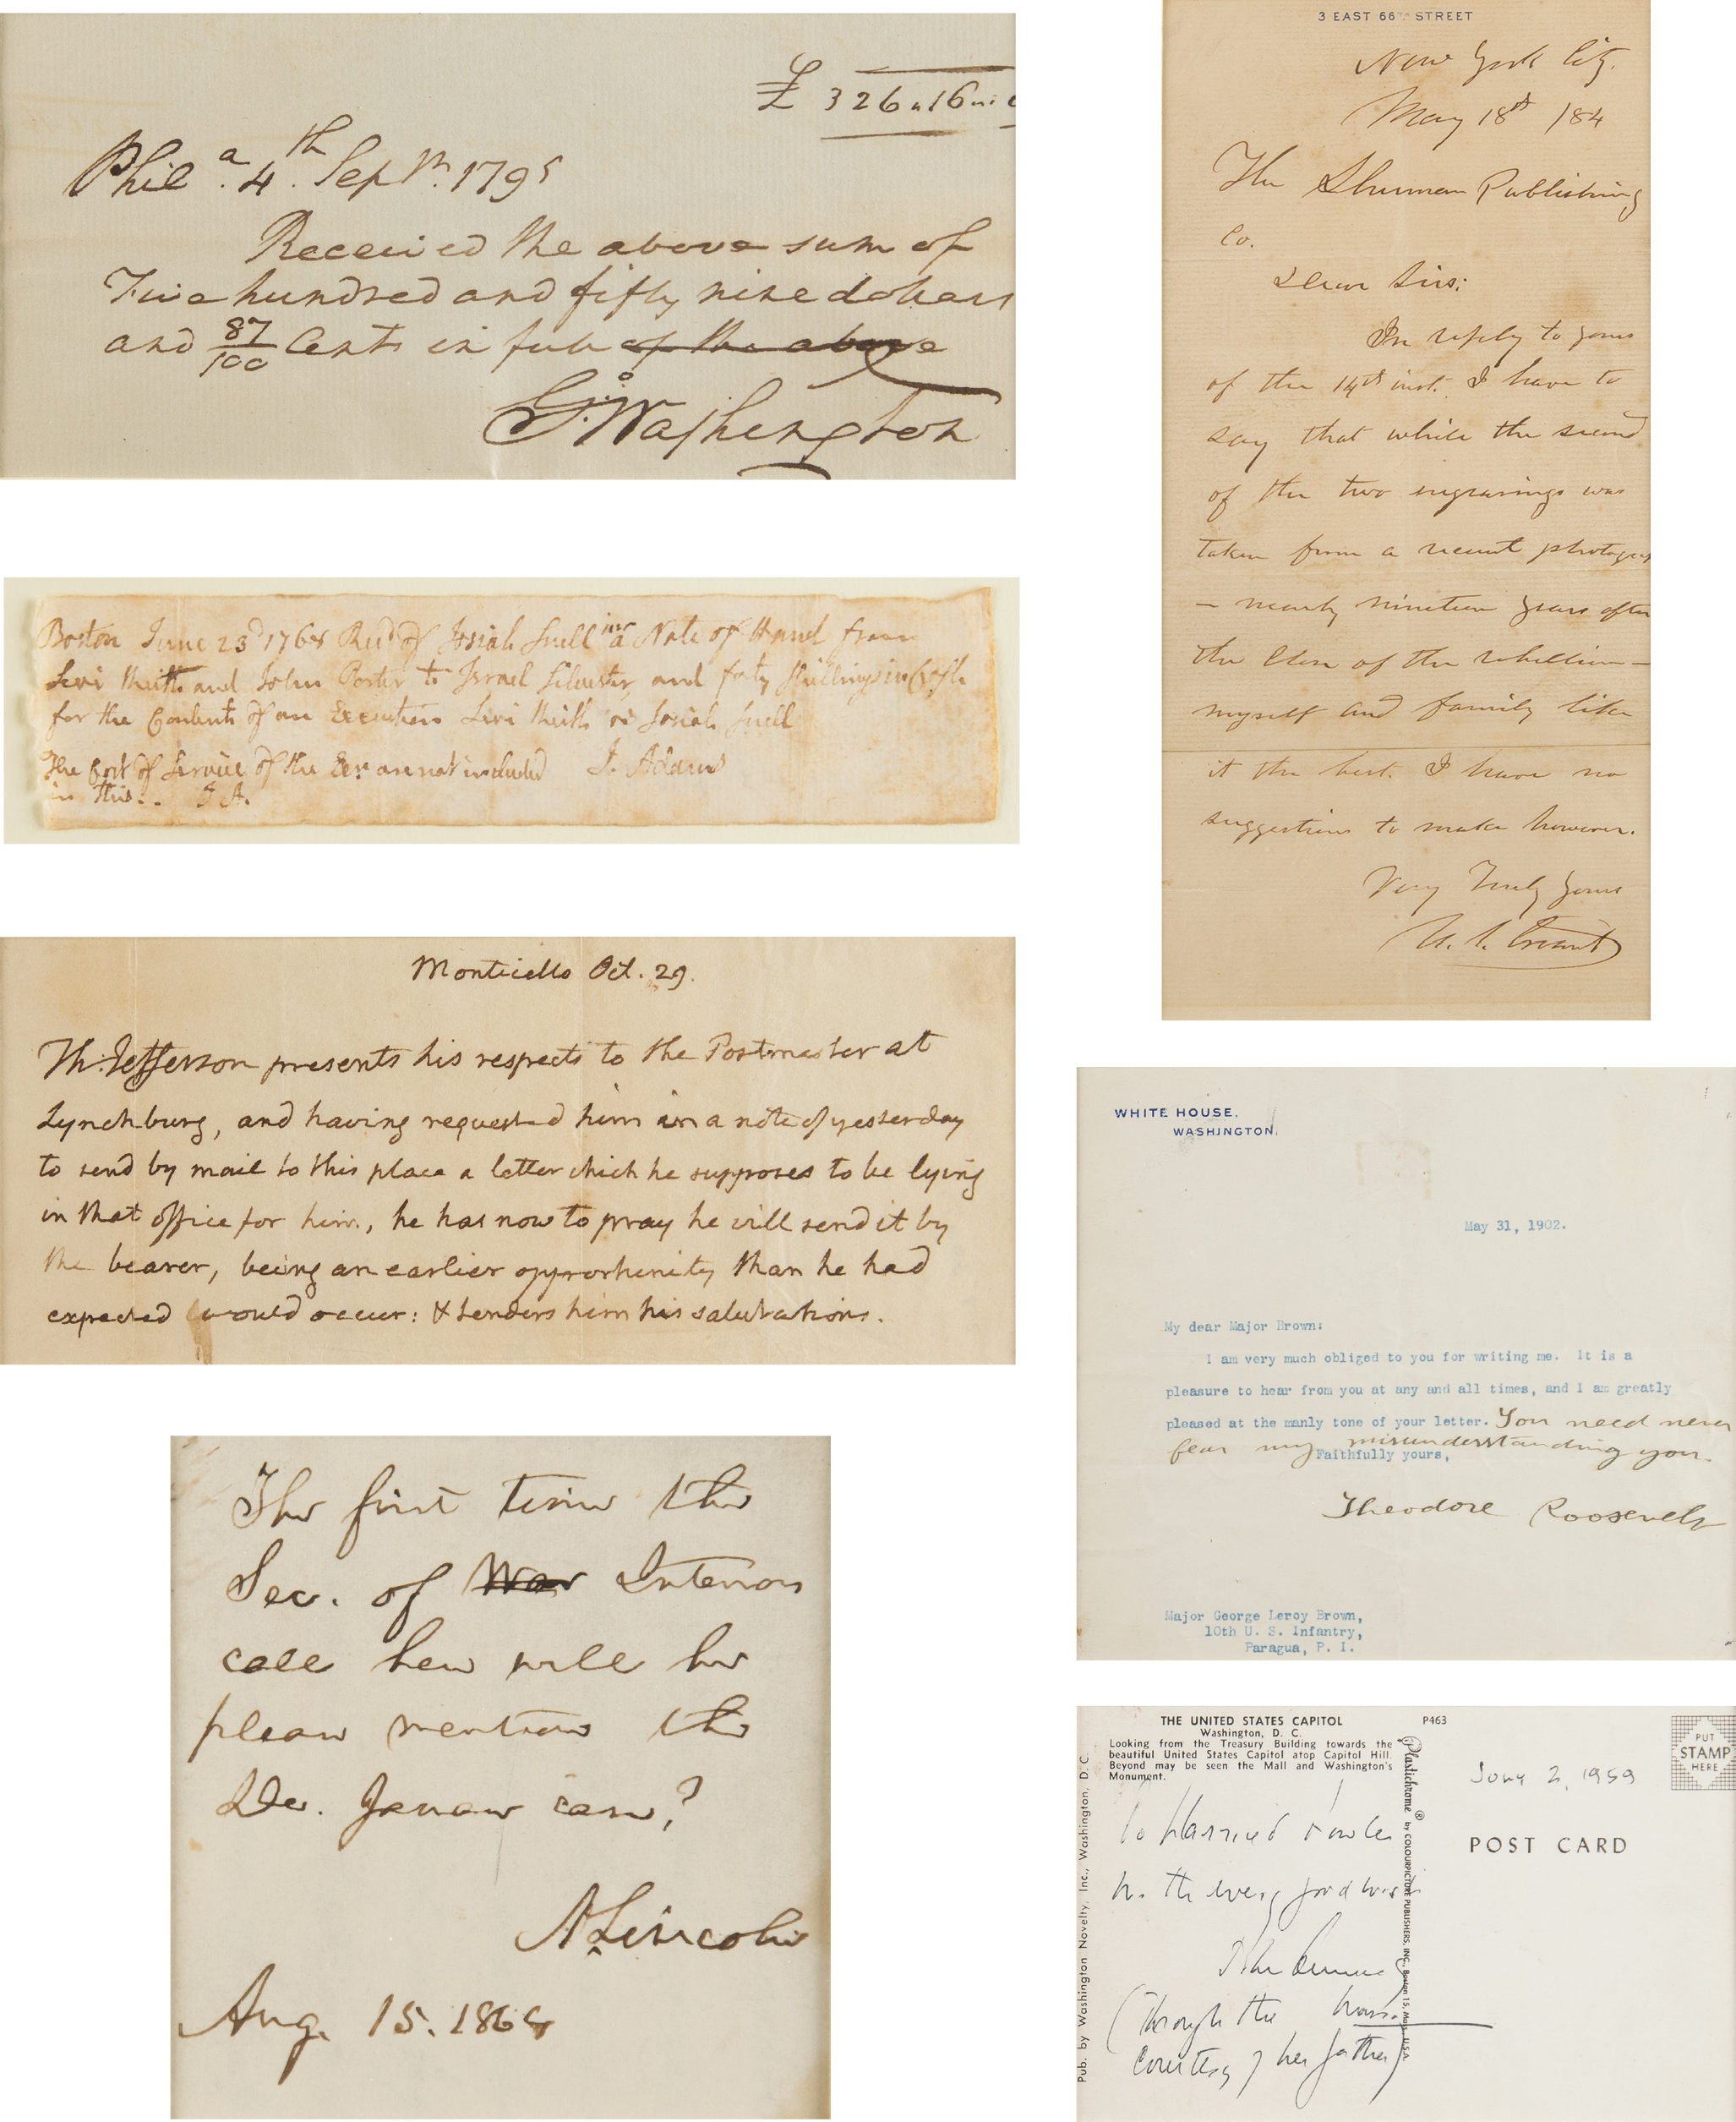 £ 326 " 16 "
Phil.ᵃ 4.ᵗʰ Sepᵗᵐ. 1795
Received the above sum of
Five hundred and fifty nine dollars
and 87/100 Cents in full of the above
G:Washington
Boston June 23ᵈ 1768 Recᵈ of Josiah Snell junr a Note of Hand from
Levi Keith and John Porter to Israel Silvester, and forty shillings in Cash
for the Contents of an Execution Levi Keith vs Josiah Snell
The Cost of Service of the Exn are not included J. Adams
in this.. J A.
Monticello Oct. 29.
Th:Jefferson presents his respects to the Postmaster at
Lynchburg, and having requested him in a note of yesterday
to send by mail to this place a letter which he supposes to be lying
in that office for him, he has now to pray he will send it by
the bearer, being an earlier opportunity than he had
expected would occur: & tenders him his salutations.
The first time the
Sec. of War Interior
calls here will he
please mention the
De. Janon case?
A. Lincoln
Aug. 15. 1864
3 EAST 66TH STREET
New York City.
May 18th /84
The Sherman Publishing
Co.
Dear Sirs:
In reply to yours
of the 14th inst. I have to
say that while the second
of the two engravings was
taken from a recent photograph
– nearly nineteen years after
the close of the rebellion –
myself and family like
it the best. I have no
suggestions to make however.
Very Truly yours
U. S. Grant
WHITE HOUSE.
WASHINGTON.
May 31, 1902.
My dear Major Brown:
I am very much obliged to you for writing me. It is a
pleasure to hear from you at any and all times, and I am greatly
pleased at the manly tone of your letter. You need never
fear my misunderstanding you.
Faithfully yours,
Theodore Roosevelt
Major George Leroy Brown,
10th U. S. Infantry,
Paragua, P. I.
THE UNITED STATES CAPITOL
Washington, D. C.
Looking from the Treasury Building towards the
beautiful United States Capitol atop Capitol Hill.
Beyond may be seen the Mall and Washington's
Monument.
P463
PUT
STAMP
HERE
June 2, 1959
POST CARD
To Harried
with every good wish
John Kennedy
(Through the
courtesy of her father)
Plastichrome ® by COLOURPICTURE PUBLISHERS, INC., Boston 15, Mass., U.S.A.
Pub. by Washington Novelty, Inc., Washington, D.C.